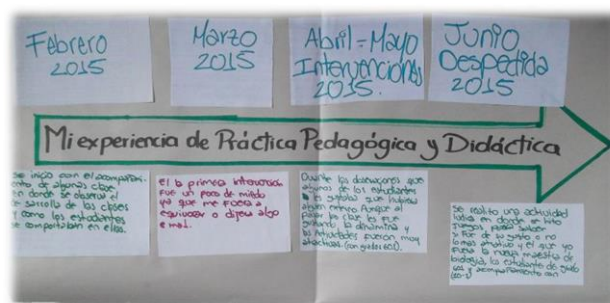 Febrero
2015
Marzo
2015
Abril-Mayo
Intervenciones
2015.
Junio
Despedida
2015
Mi experiencia de Práctica Pedagógica y Didáctica
se inicio con el
de algunas clase
en donde se observa el
de las clases
y como los estudiantes
se comportaban en ellas.
el la primera intervencion
fue un poco de miedo
ya que me fuera a
equivocar o dijera algo
mal.
Durante las que
algunos de los estudiantes
que hubiera
Aunque al
pasar las clases fue
la dinamica y
las actividades fueron muy
atractivas (con grados 601).
se realizo una actividad
en donde se hizo
juegos, para saber
si fue de su gusto o no
emotivo y el que yo
fuera la nueva maestra de
biologia, los estudiante de grado
601 y acompañamiento con